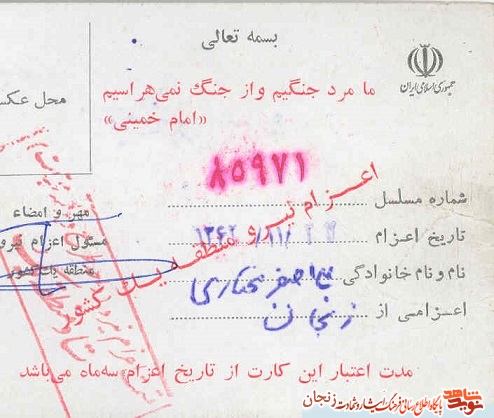 بسمه تعالی
جمهوری اسلامی ایران
ما مرد جنگیم و از جنگ نمی هراسیم
«امام خمینی»
محل عکس
شماره مسلسل ۸۵۹۷۱
تاریخ اعزام ۱۳۶۲/۱۱/۲۲
نام و نام خانوادگی اصغر مختاری
اعزامی از زنجان
مهر و امضاء
مسئول اعزام نیرو
منطقه یك كشور
اعزام نیرو منطقه یك كشور
مدت اعتبار این کارت از تاریخ اعزام سه ماه می باشد
نوید شاهد
پایگاه اطلاع رسانی فرهنگ ایثار و شهادت زنجان